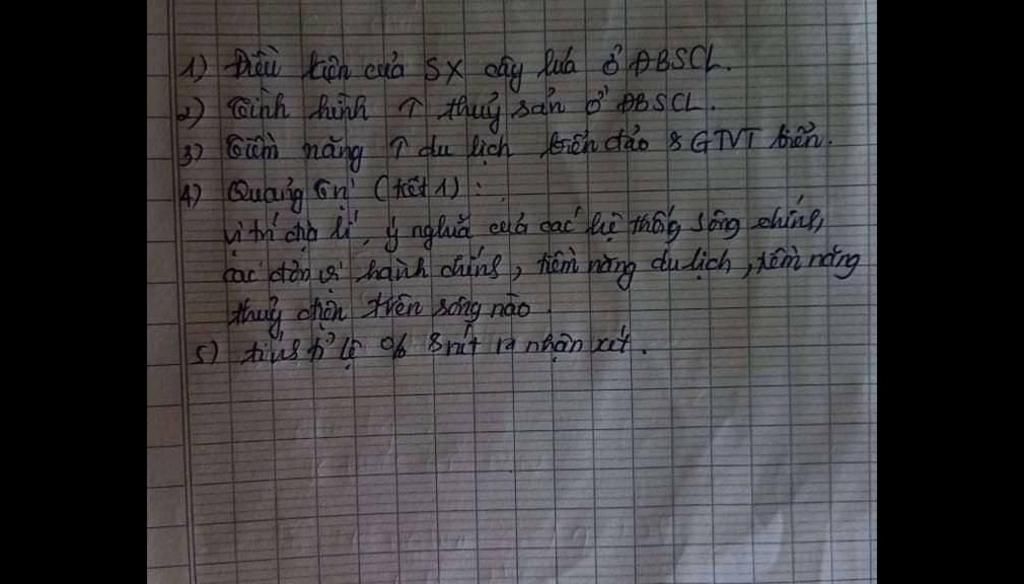 1) Điều kiện của SX cây lúa ở ĐBSCL.
2) Tình hình ↑ thuỷ sản ở ĐBSCL.
3) Tiềm năng ↑ du lịch biển đảo & GTVT biển.
4) Quảng (tiết 1) :
vị trí địa lí, ý nghĩa của các hệ thống sông chính,
các đơn vị hành chính, tiềm năng du lịch, tiềm năng
thuỷ điện trên sông nào.
5) tính tỉ lệ % & rút ra nhận xét.